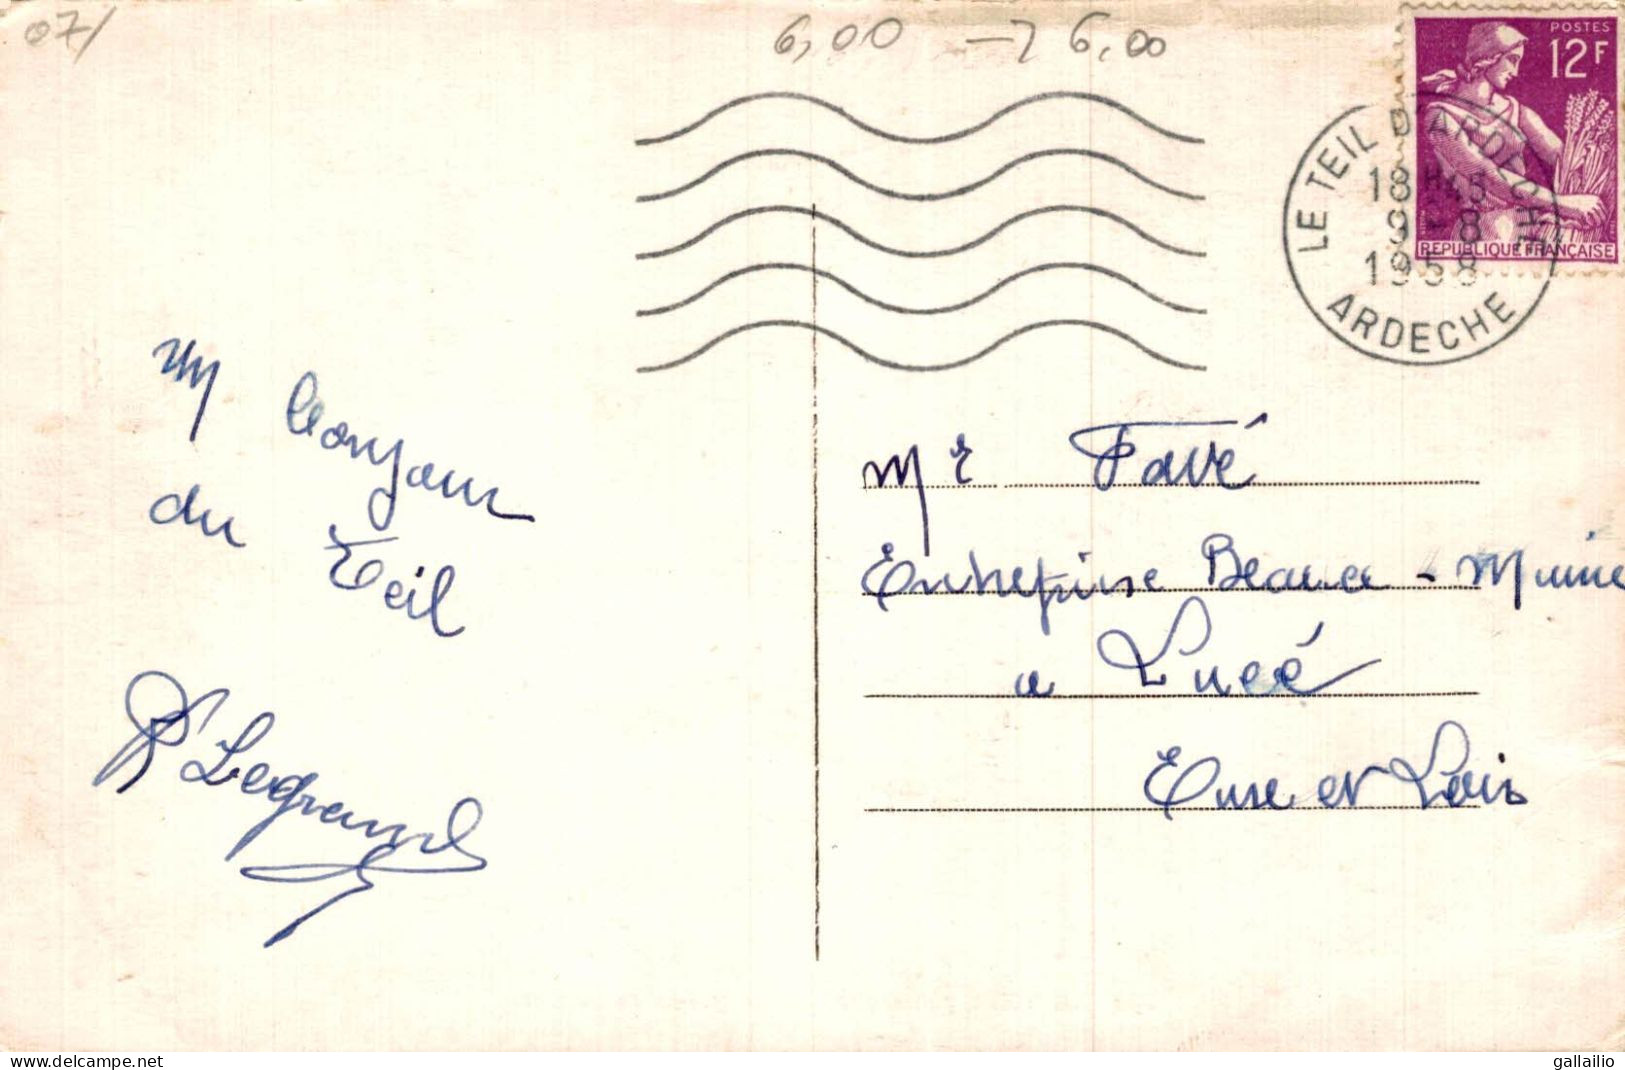 07/
6,00 - 26,00
POSTES
12F
RÉPUBLIQUE FRANÇAISE
LE TEIL D'ARDECHE
18H45
9-8
1958
ARDECHE
un bonjour
du Teil
Legrand
Mr Favé
Entreprise Beauce-
a Lucé
Eure et Loir
delcampe.net
gallailio